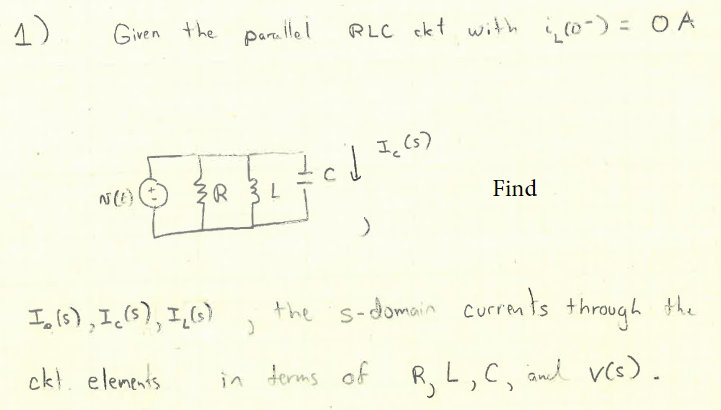 1) Given the parallel RLC ckt with i_L(0-) = 0 A
I_c(s)
C
v(t) + - R L
Find
)
I_R(s), I_c(s), I_L(s), the s-domain currents through the
ckt. elements in terms of R, L, C, and V(s).